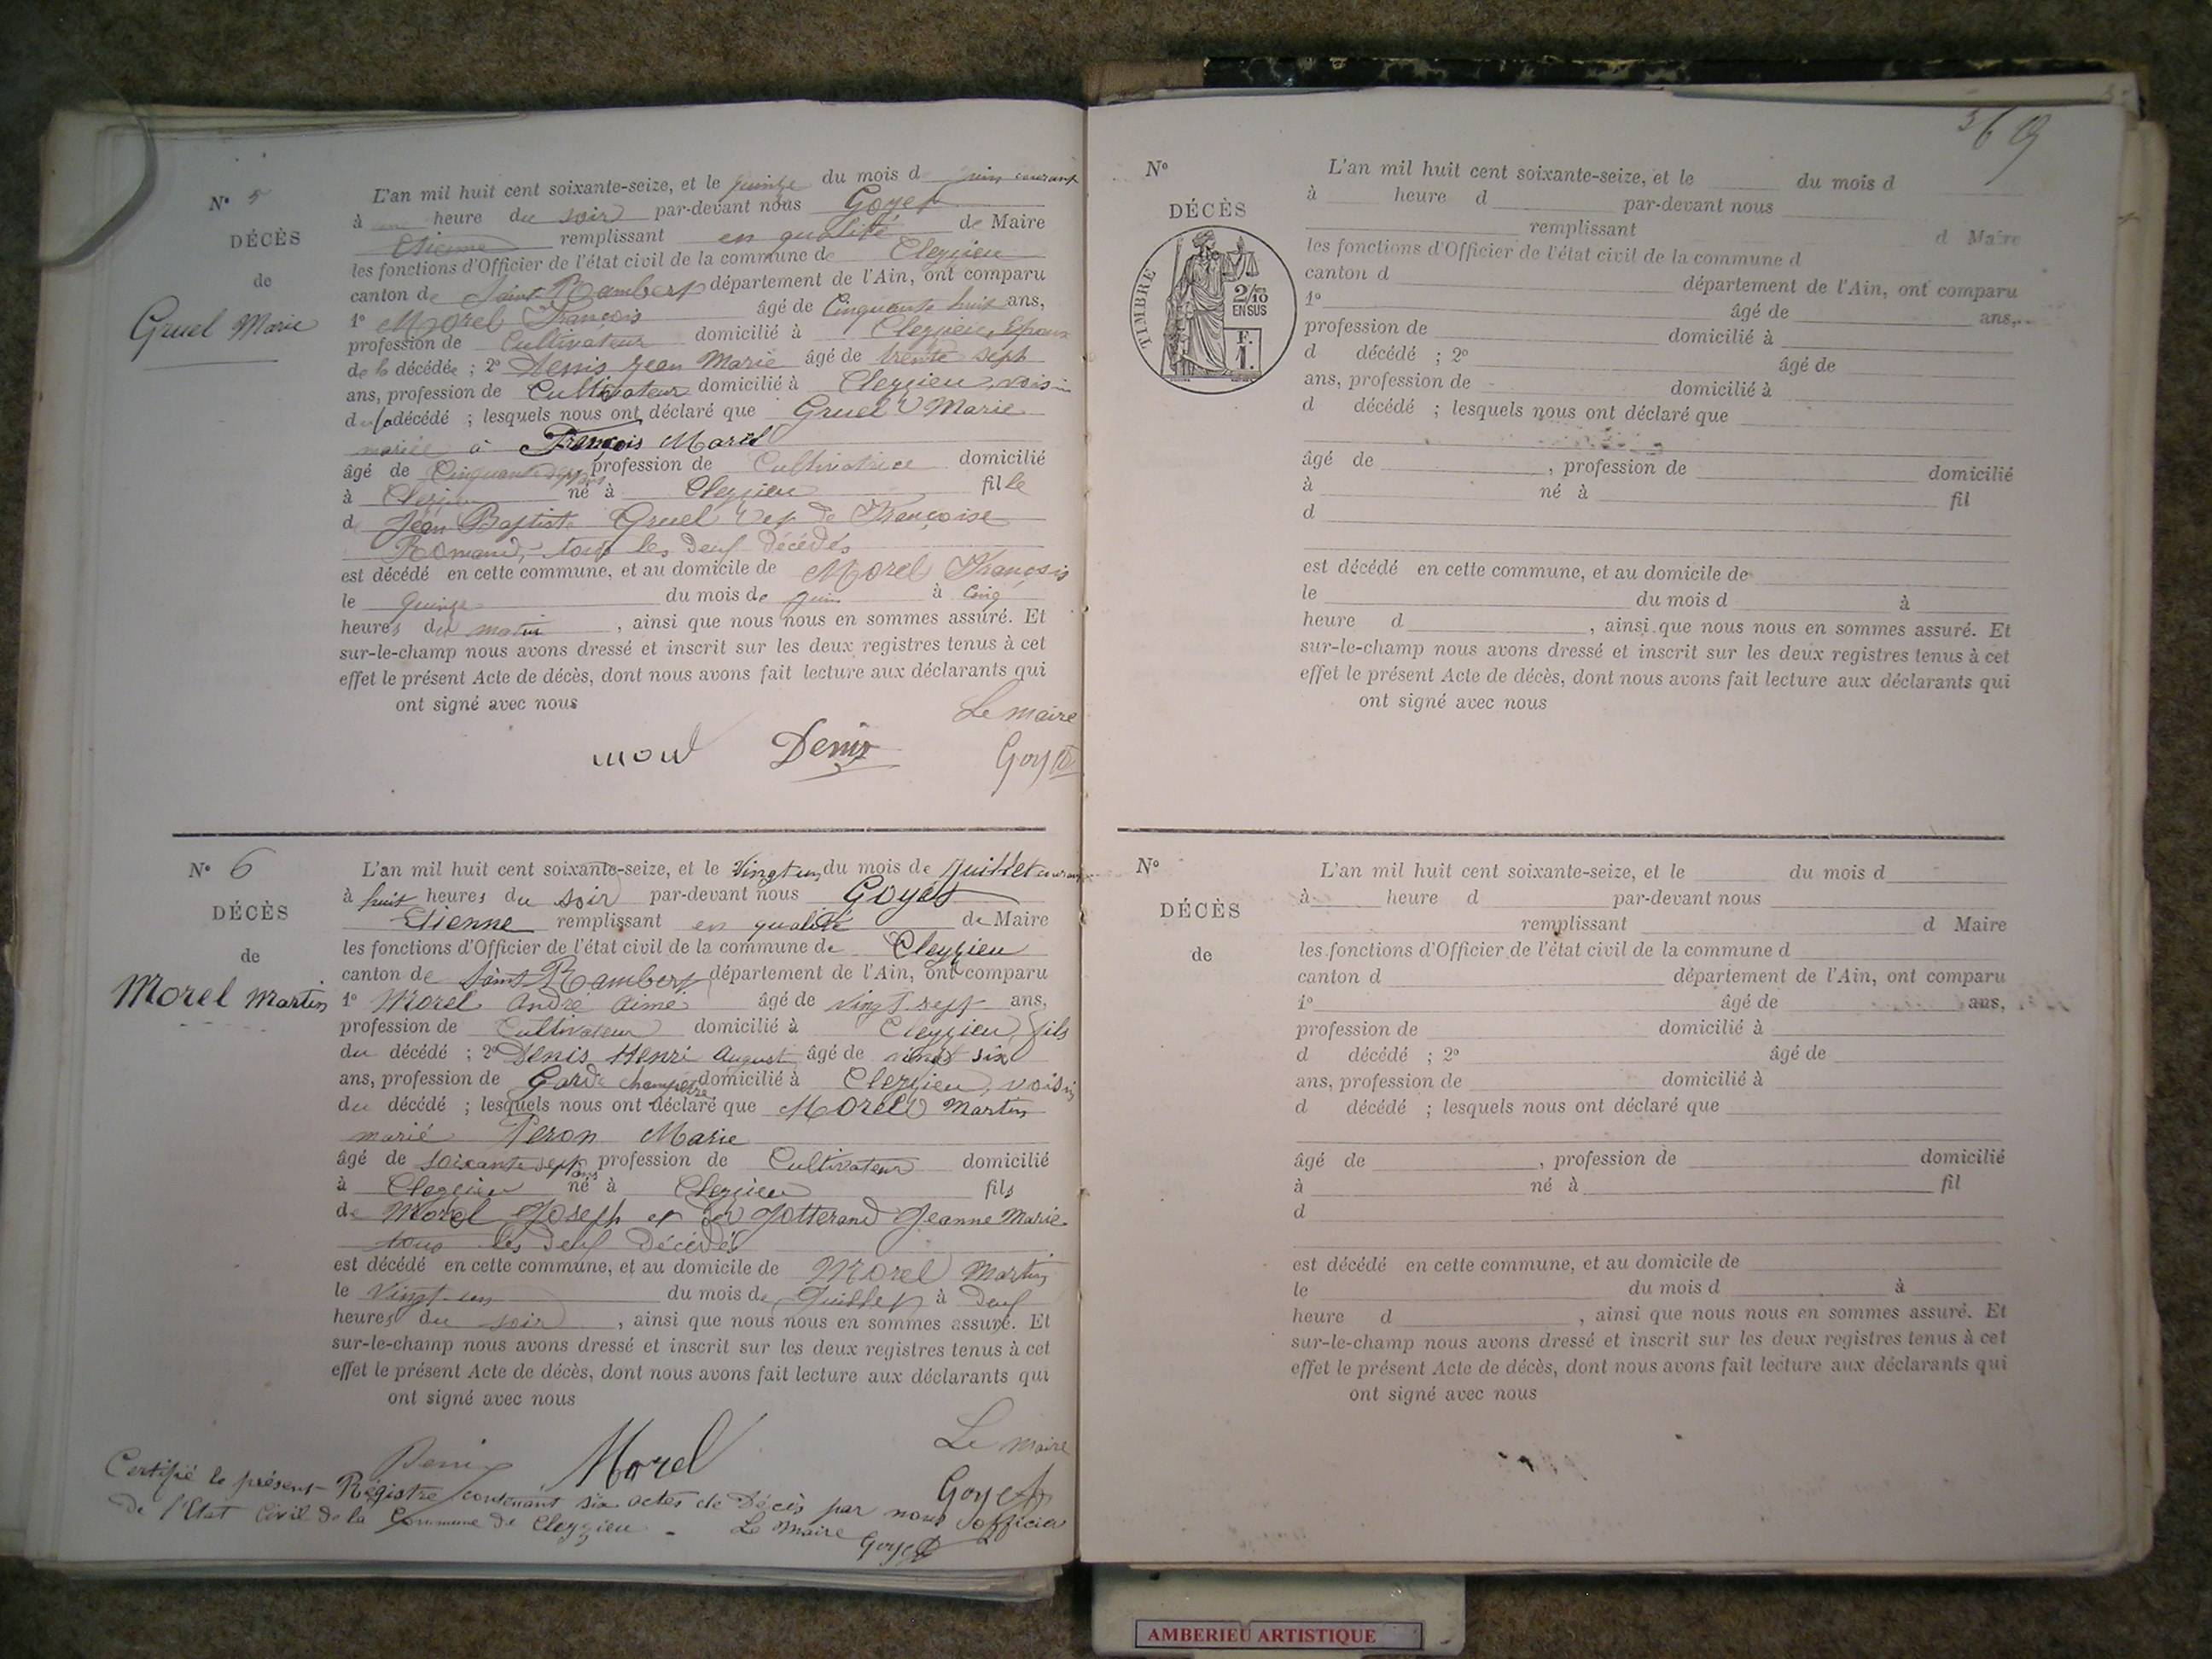 N° 5
DÉCÈS
de
Gruel Marie
L'an mil huit cent soixante-seize, et le quinze du mois d juin courant
à un heure du soir par-devant nous Goyet
Etienne remplissant en qualité de Maire
les fonctions d'Officier de l'état civil de la commune de Cleyzieu
canton de Saint-Rambert département de l'Ain, ont comparu
1° Morel François âgé de Cinquante huit ans,
profession de Cultivateur domicilié à Cleyzieu, Epoux
de la décédée ; 2° Denis Jean Marie âgé de trente sept
ans, profession de Cultivateur domicilié à Cleyzieu, voisin
de la décédé ; lesquels nous ont déclaré que Gruel Marie
mariée à François Morel
âgé de Cinquante sept ans profession de Cultivatrice domicilié
à Cleyzieu né à Cleyzieu fille
d Jean Baptiste Gruel et de Françoise
Romand, tous les deux décédés
est décédé en cette commune, et au domicile de Morel François
le quinze du mois de juin à cinq
heures du matin , ainsi que nous nous en sommes assuré. Et
sur-le-champ nous avons dressé et inscrit sur les deux registres tenus à cet
effet le présent Acte de décès, dont nous avons fait lecture aux déclarants qui
ont signé avec nous
Le maire
Denis Goyet
N° 6
DÉCÈS
de
Morel Martin
L'an mil huit cent soixante-seize, et le vingt un du mois de Juillet courant
à huit heures du soir par-devant nous Goyet
Etienne remplissant en qualité de Maire
les fonctions d'Officier de l'état civil de la commune de Cleyzieu
canton de Saint Rambert département de l'Ain, ont comparu
1° Morel André Aimé âgé de vingt sept ans,
profession de Cultivateur domicilié à Cleyzieu, fils
du décédé ; 2° Denis Henri August âgé de vingt six
ans, profession de Garde champêtre domicilié à Cleyzieu, voisin
du décédé ; lesquels nous ont déclaré que Morel Martin
marié Peron Marie
âgé de soixante sept ans profession de Cultivateur domicilié
à Cleyzieu né à Cleyzieu fils
de Morel Joseph et de Jotterand Jeanne Marie
tous les deux Décédés
est décédé en cette commune, et au domicile de Morel Martin
le vingt un du mois de Juillet à deux
heures du soir , ainsi que nous nous en sommes assuré. Et
sur-le-champ nous avons dressé et inscrit sur les deux registres tenus à cet
effet le présent Acte de décès, dont nous avons fait lecture aux déclarants qui
ont signé avec nous
Le maire
Denis Morel Goyet
Certifié le présent Régistre contenant six actes de Décès par nous officier
de l'Etat Civil de la Commune de Cleyzieu - Le Maire
Goyet
N°
DÉCÈS
TIMBRE
2/10
EN SUS
F.
1.
L'an mil huit cent soixante-seize, et le du mois d
à heure d par-devant nous
remplissant d Maire
les fonctions d'Officier de l'état civil de la commune d
canton d département de l'Ain, ont comparu
1° âgé de ans,
profession de domicilié à
d décédé ; 2° âgé de
ans, profession de domicilié à
d décédé ; lesquels nous ont déclaré que
âgé de , profession de domicilié
à né à fil
d
est décédé en cette commune, et au domicile de
le du mois d à
heure d , ainsi que nous nous en sommes assuré. Et
sur-le-champ nous avons dressé et inscrit sur les deux registres tenus à cet
effet le présent Acte de décès, dont nous avons fait lecture aux déclarants qui
ont signé avec nous
N°
DÉCÈS
de
L'an mil huit cent soixante-seize, et le du mois d
à heure d par-devant nous
remplissant d Maire
les fonctions d'Officier de l'état civil de la commune d
canton d département de l'Ain, ont comparu
1° âgé de ans,
profession de domicilié à
d décédé ; 2° âgé de
ans, profession de domicilié à
d décédé ; lesquels nous ont déclaré que
âgé de , profession de domicilié
à né à fil
d
est décédé en cette commune, et au domicile de
le du mois d à
heure d , ainsi que nous nous en sommes assuré. Et
sur-le-champ nous avons dressé et inscrit sur les deux registres tenus à cet
effet le présent Acte de décès, dont nous avons fait lecture aux déclarants qui
ont signé avec nous
AMBERIEU ARTISTIQUE